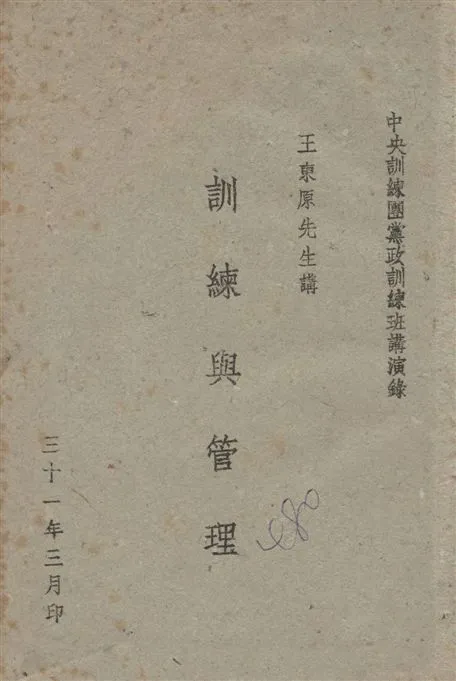 中央訓練團黨政訓練班講演錄
王東原先生講
訓練與管理
三十一年三月印